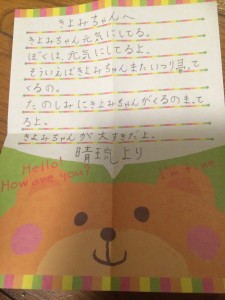 きよみちゃんへ
きよみちゃん元気にしてる。
ぼくは、元気にしてるよ。
そういえばきよみちゃんまたいつり帰って
くるの。
たのしみにきよみちゃんがくるのまって
るよ。
きよみちゃんが大すきだよ。
晴琉より
Hello!
How are you?
I'm fine